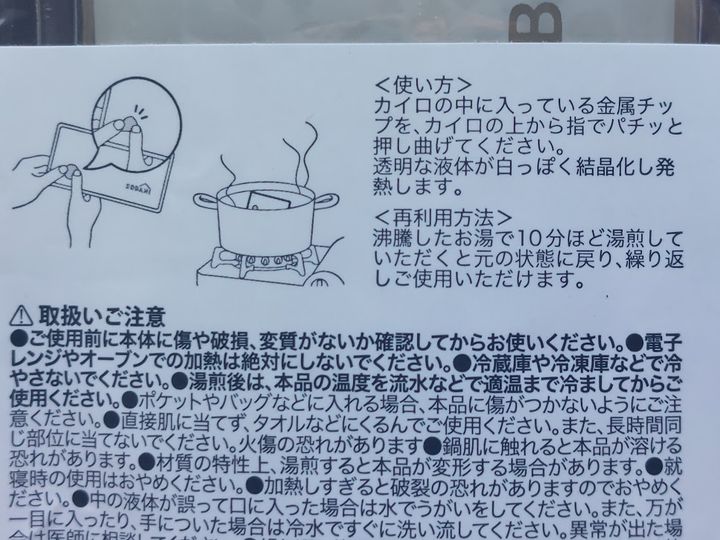 B
SODANI
<使い方>
カイロの中に入っている金属チッ
プを、カイロの上から指でパチッと
押し曲げてください。
透明な液体が白っぽく結晶化し発
熱します。
<再利用方法>
沸騰したお湯で10分ほど湯煎して
いただくと元の状態に戻り、繰り返
しご使用いただけます。
⚠ 取扱いご注意
●ご使用前に本体に傷や破損、変質がないか確認してからお使いください。●電子
レンジやオーブンでの加熱は絶対にしないでください。●冷蔵庫や冷凍庫などで冷
やさないでください。●湯煎後は、本品の温度を流水などで適温まで冷ましてからご
使用ください。●ポケットやバッグなどに入れる場合、本品に傷がつかないようにご注
意ください。●直接肌に当てず、タオルなどにくるんでご使用ください。また、長時間同
じ部位に当てないでください。火傷の恐れがあります●鍋肌に触れると本品が溶ける
恐れがあります。●材質の特性上、湯煎すると本品が変形する場合があります。●就
寝時の使用はおやめください。●加熱しすぎると破裂の恐れがありますのでおやめく
ださい。●中の液体が誤って口に入った場合は水でうがいをしてください。また、万が
一目に入ったり、手についた場合は冷水ですぐに洗い流してください。異常が出た場
合は医師に相談してください。